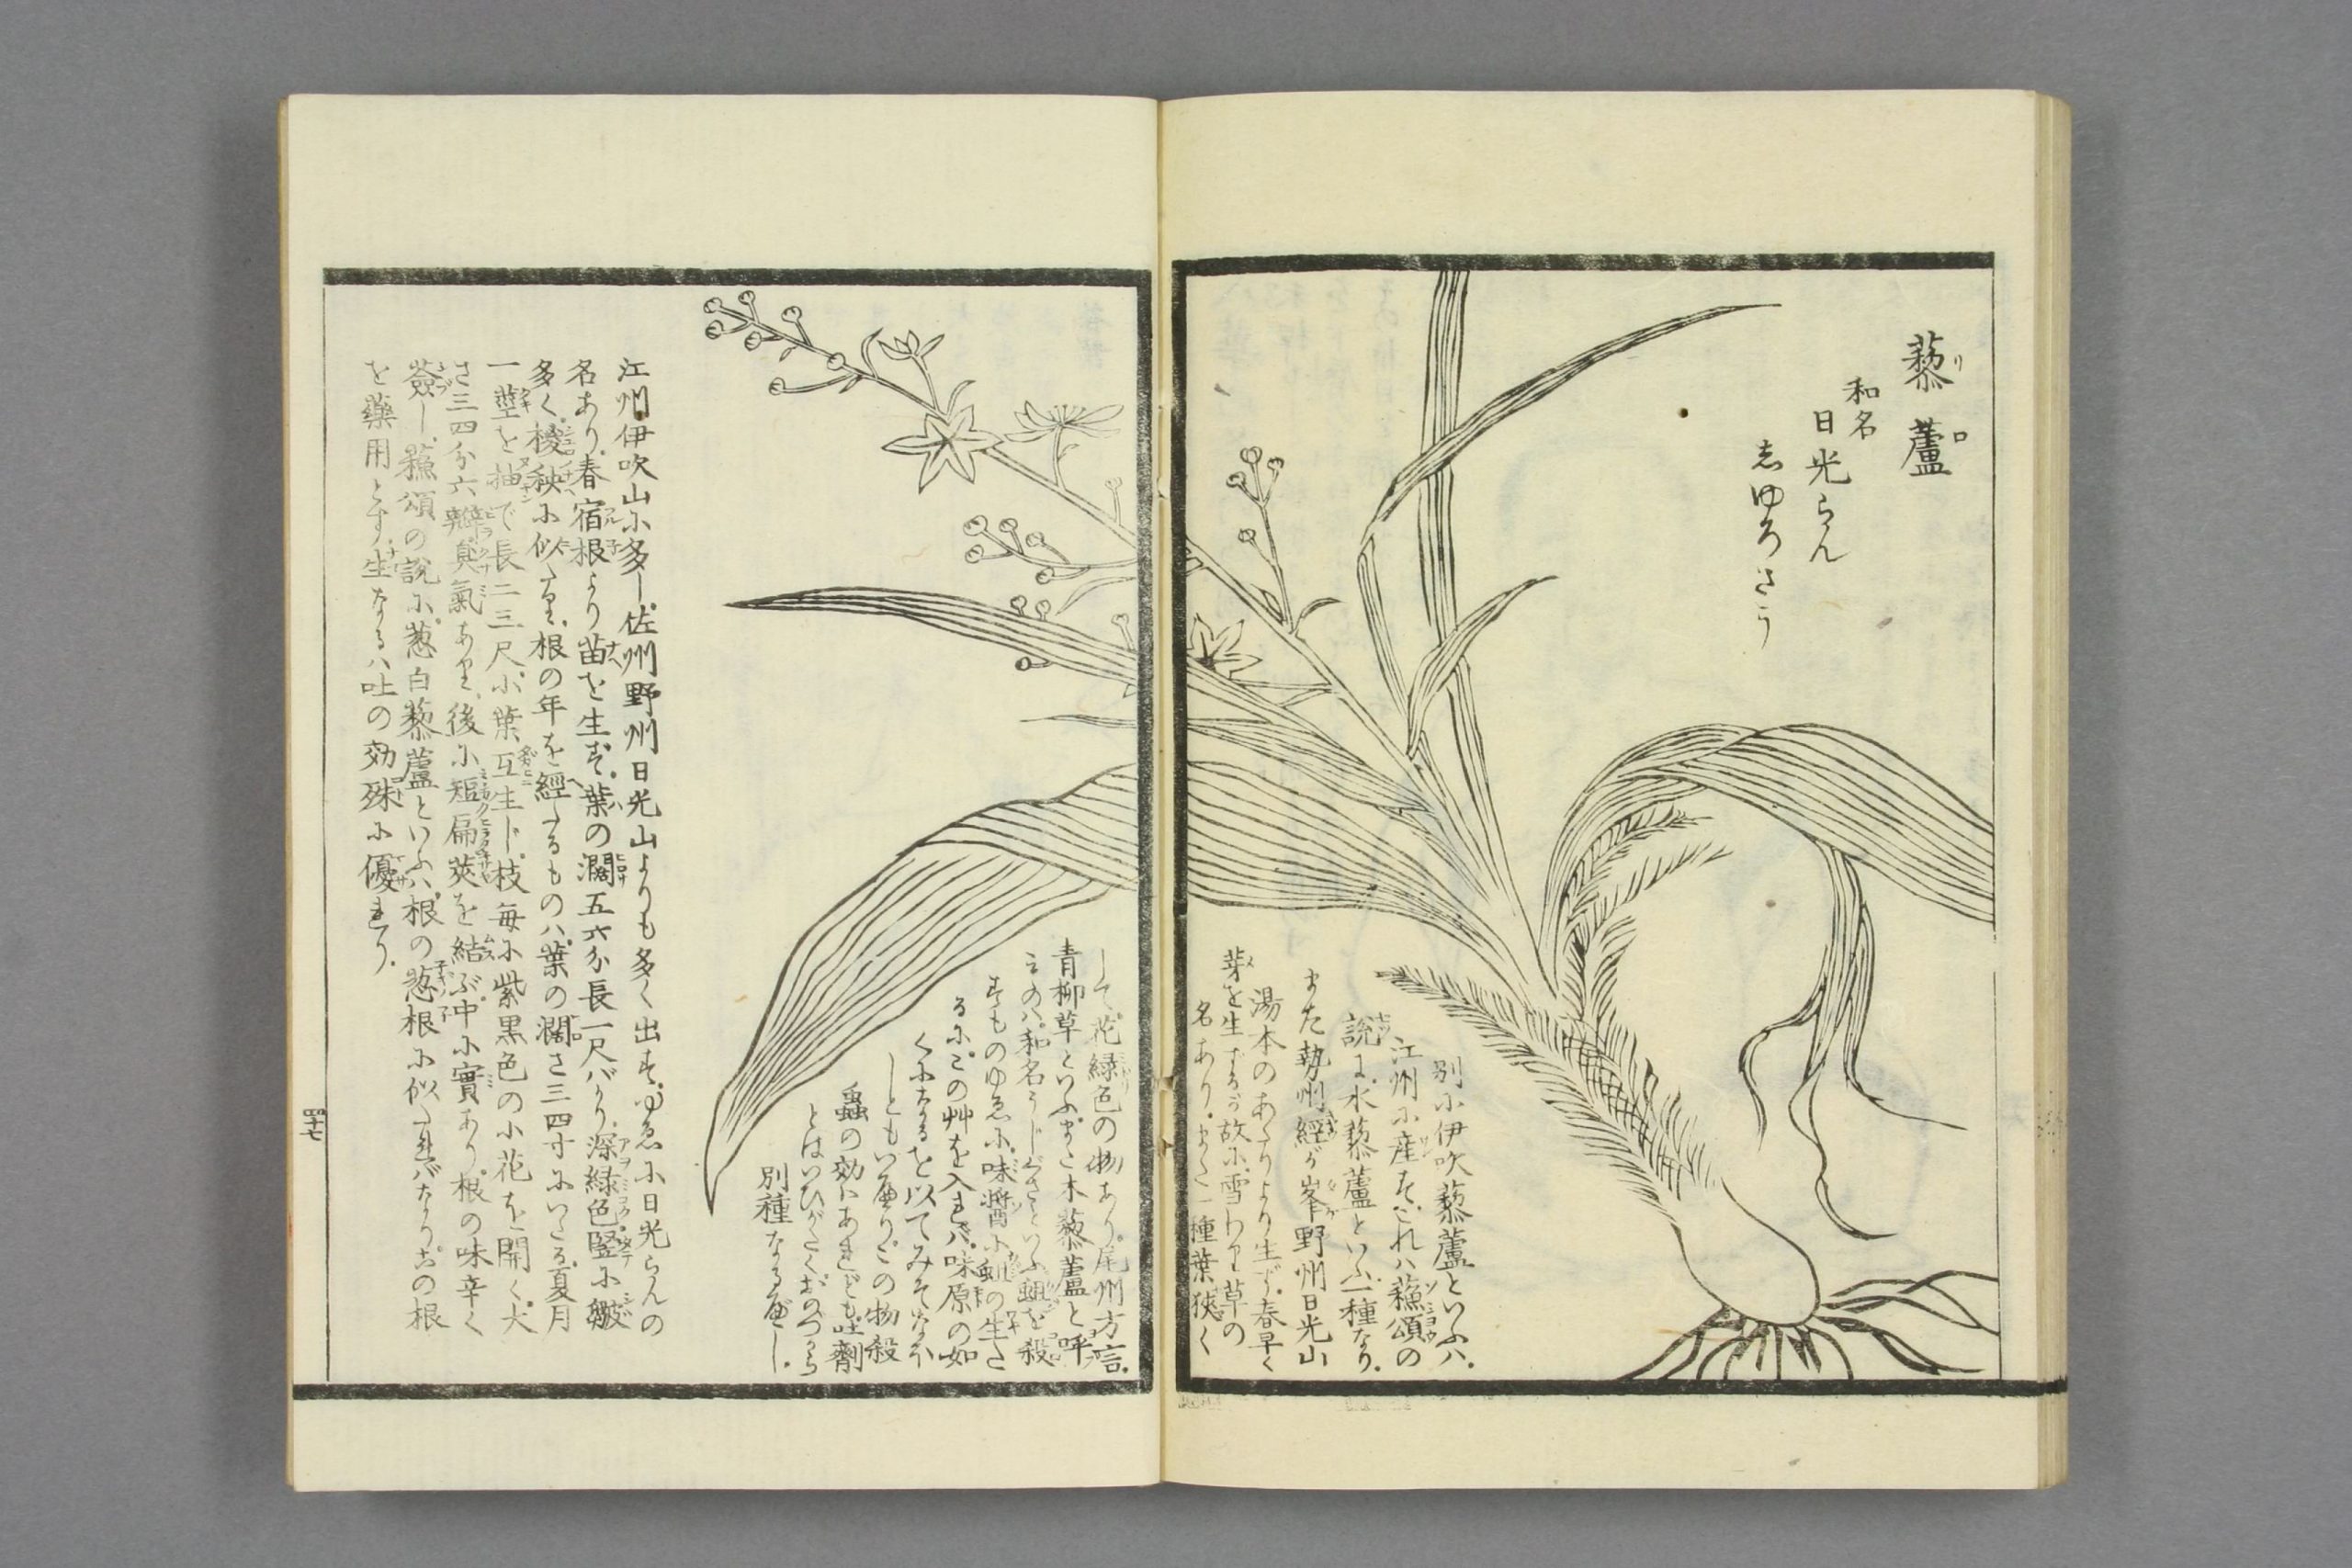 藜蘆
リロ
和名
日光らん
志ゆろさう
別に伊吹藜蘆といふハ
江州に産す。これハ蘓頌の
説に水藜蘆といふ一種なり。
また勢州經が峯野州日光山
湯本のあたりより生ず。春早く
芽を生ずるが故に雪わり草の
名あり。また一種葉狹く
して花緑色の物あり。尾州方言
青柳草といふ。また木藜蘆と呼
ものハ和名うじくさといふ蛆を殺
すものゆゑに味醤に蛆の生た
るにこの艸を入れバ味原の如
くになるを以てみそなほ
しともいへり。この物殺
蟲の効ハあれども吐劑
とはいひがたくおのづから
別種なるべし。
江州伊吹山に多し。佐州野州日光山よりも多く出す。ゆゑに日光らんの
名あり。春宿根より苗を生ず。葉の濶五六分長一尺バかり。深緑色竪に皺
多く椶秧に似たり。根の年を經たるものハ葉の濶さ三四寸にいたる。夏月
一莖を抽で長二三尺。小葉互生し。枝毎に紫黒色の小花を開く。大
さ三四分六瓣臭氣あり。後に短扁莢を結ぶ。中に實あり。根の味辛く
薟し。蘓頌の説に葱白藜蘆といふハ根の葱根に似たれバなり。この根
を藥用とす。生なるハ吐の効殊に優れり。
四十七